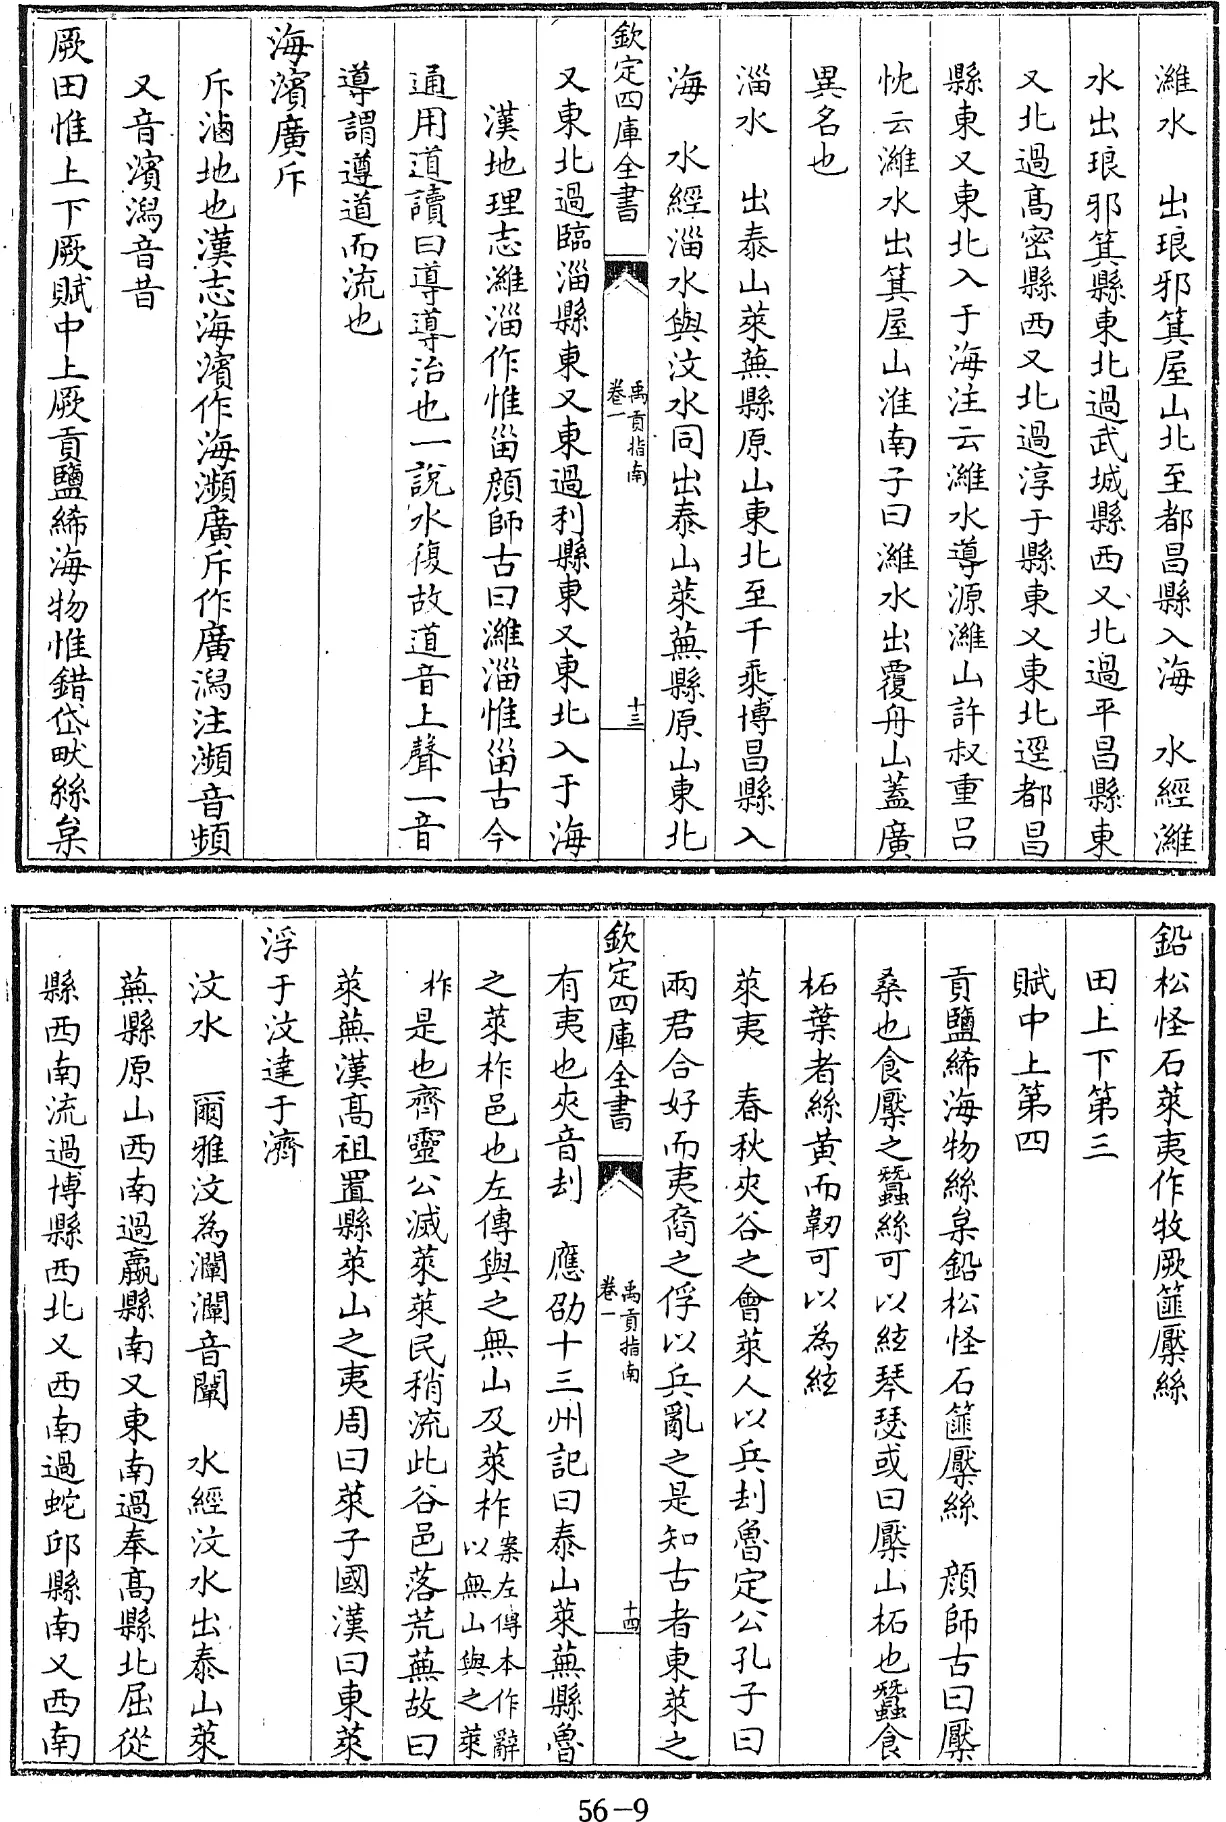 濰水　出琅邪箕屋山北至都昌縣入海　水經濰
水出琅邪箕縣東北過武城縣西又北過平昌縣東
又北過髙密縣西又北過淳于縣東又東北逕都昌
縣東又東北入于海注云濰水導源濰山許叔重吕
忱云濰水出箕屋山淮南子曰濰水出覆舟山蓋廣
異名也
淄水　出泰山萊蕪縣原山東北至千乘博昌縣入
海　水經淄水與汶水同出泰山萊蕪縣原山東北
欽定四庫全書
禹貢指南
卷一
十三
又東北過臨淄縣東又東過利縣東又東北入于海
漢地理志濰淄作惟甾顔師古曰濰淄惟甾古今
通用道讀曰導導治也一説水復故道音上聲一音
導謂遵道而流也
海濱廣斥
斥滷地也漢志海濱作海瀕廣斥作廣潟注瀕音頻
又音濱潟音昔
厥田惟上下厥賦中上厥貢鹽絺海物惟錯岱畎絲枲
鉛松怪石萊夷作牧厥篚檿絲
田上下第三
賦中上第四
貢鹽絺海物絲枲鉛松怪石篚檿絲　顔師古曰檿
桑也食檿之蠶絲可以絃琴瑟或曰檿山柘也蠶食
柘葉者絲黄而韌可以為絃
萊夷　春秋夾谷之會萊人以兵刦魯定公孔子曰
兩君合好而夷裔之俘以兵亂之是知古者東萊之
欽定四庫全書
禹貢指南
卷一
十四
有夷也夾音刦　應劭十三州記曰泰山萊蕪縣魯
之萊柞邑也左傳與之無山及萊柞案左傳本作辭以無山與之萊
柞是也齊靈公滅萊萊民稍流此谷邑落荒蕪故曰
萊蕪漢髙祖置縣萊山之夷周曰萊子國漢曰東萊
浮于汶達于濟
汶水　爾雅汶為瀾瀾音闡　水經汶水出泰山萊
蕪縣原山西南過嬴縣南又東南過奉髙縣北屈從
縣西南流過博縣西北又西南過蛇邱縣南又西南
56-9